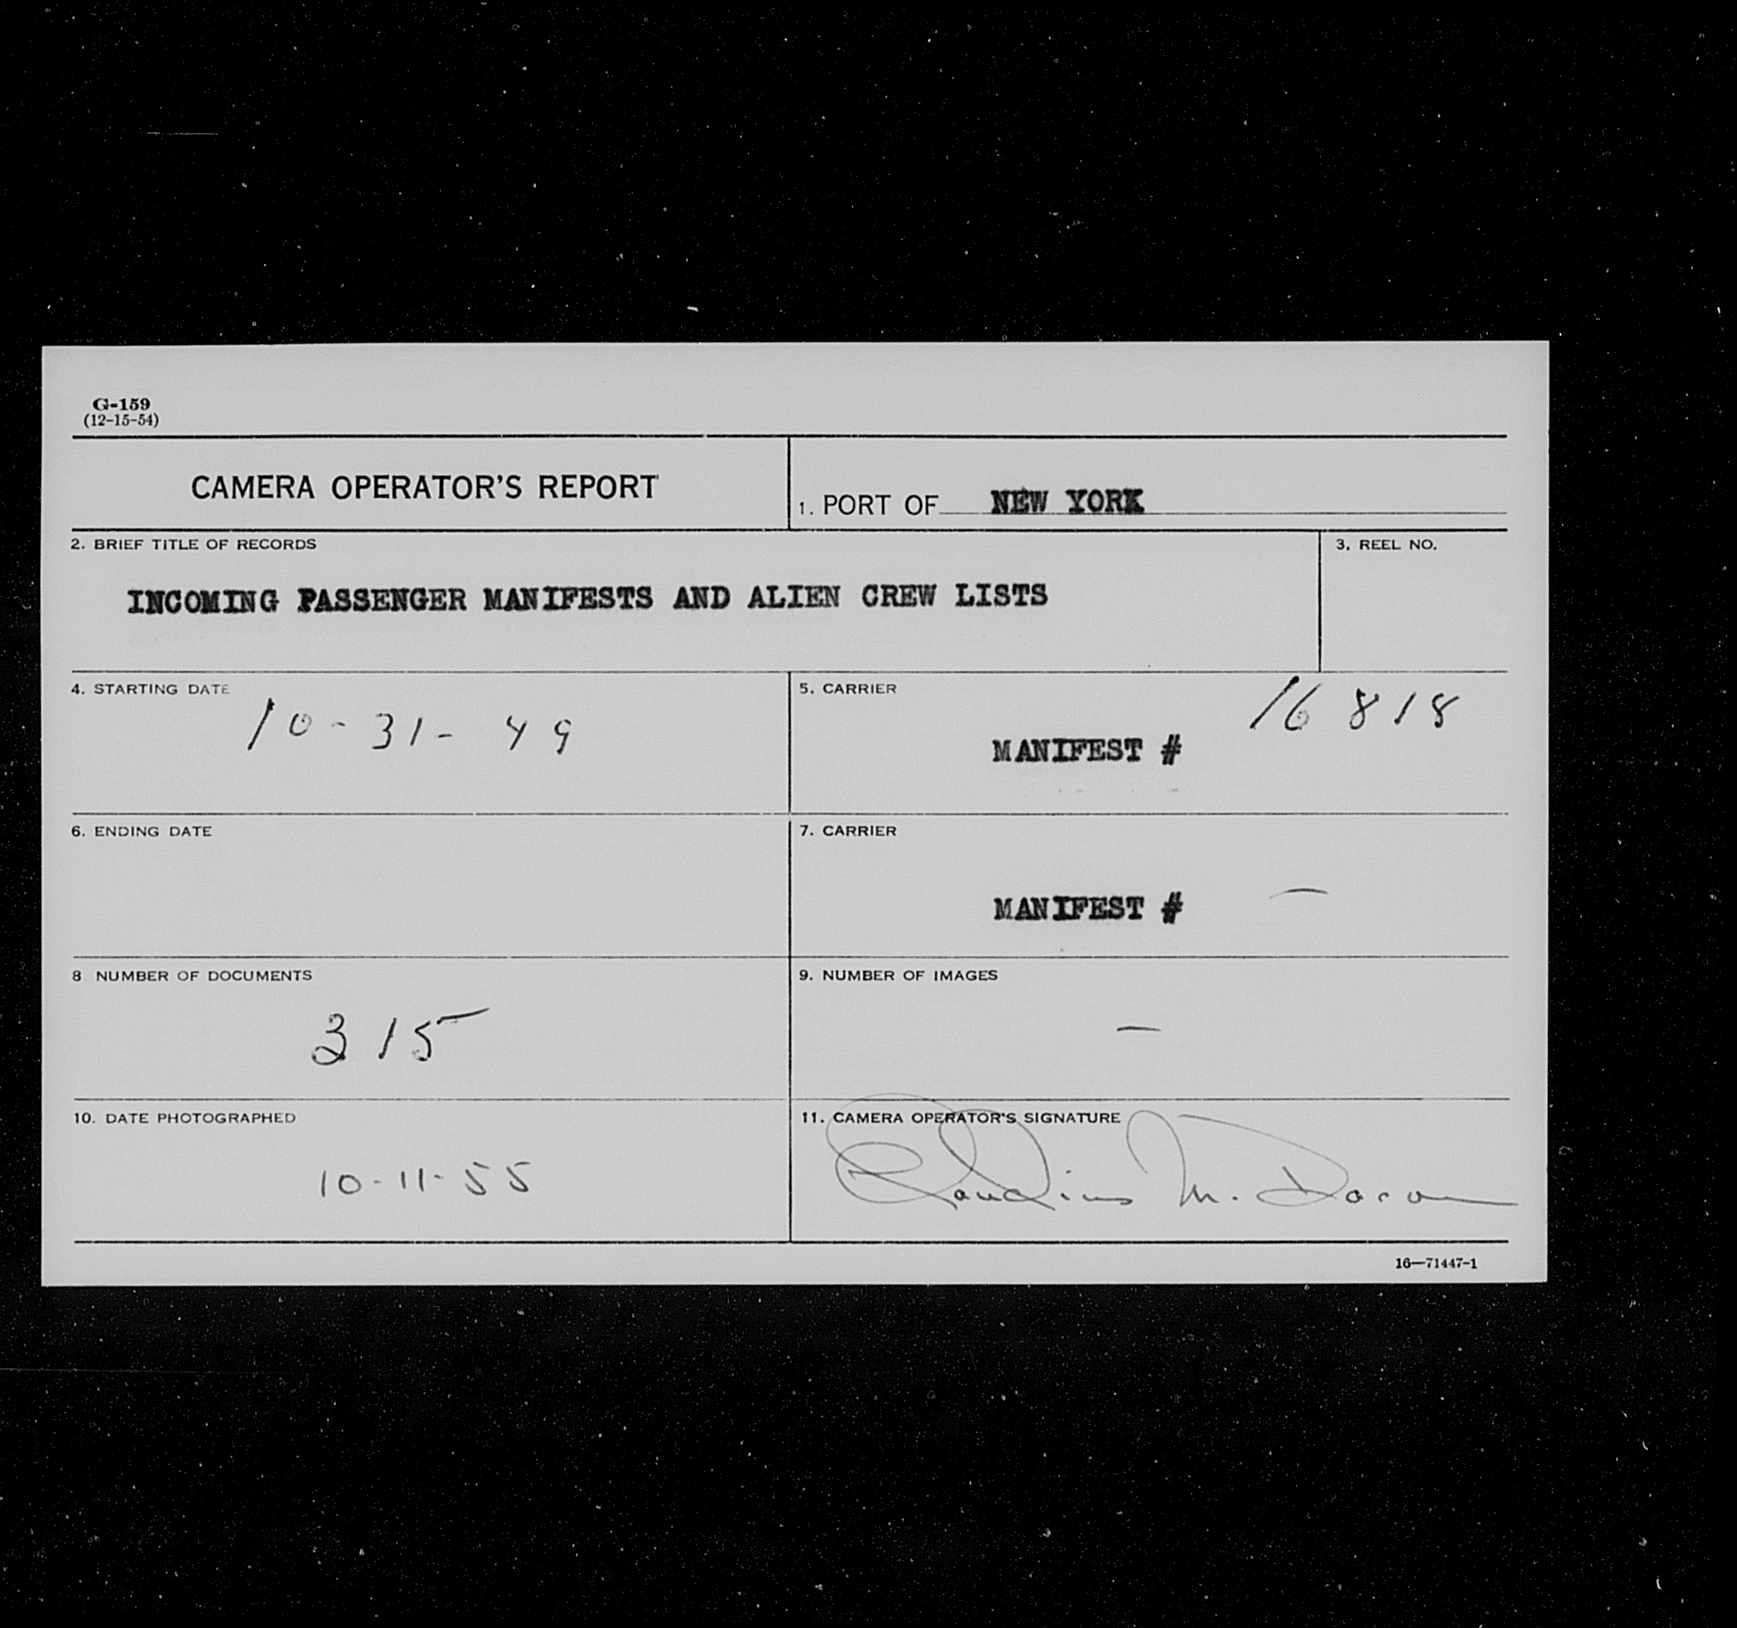 G-159
(12-15-54)
CAMERA OPERATOR'S REPORT
1. PORT OF NEW YORK
2. BRIEF TITLE OF RECORDS
3. REEL NO.
INCOMING PASSENGER MANIFESTS AND ALIEN CREW LISTS
4. STARTING DATE
10-31-49
5. CARRIER
16818
MANIFEST #
6. ENDING DATE
7. CARRIER
MANIFEST # —
8 NUMBER OF DOCUMENTS
315
9. NUMBER OF IMAGES
—
10. DATE PHOTOGRAPHED
10-11-55
11. CAMERA OPERATOR'S SIGNATURE
Claudius M.
16—71447-1